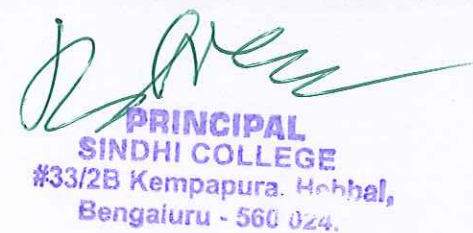 PRINCIPAL
SINDHI COLLEGE
#33/2B Kempapura. Hebbal,
Bengaluru - 560 024.